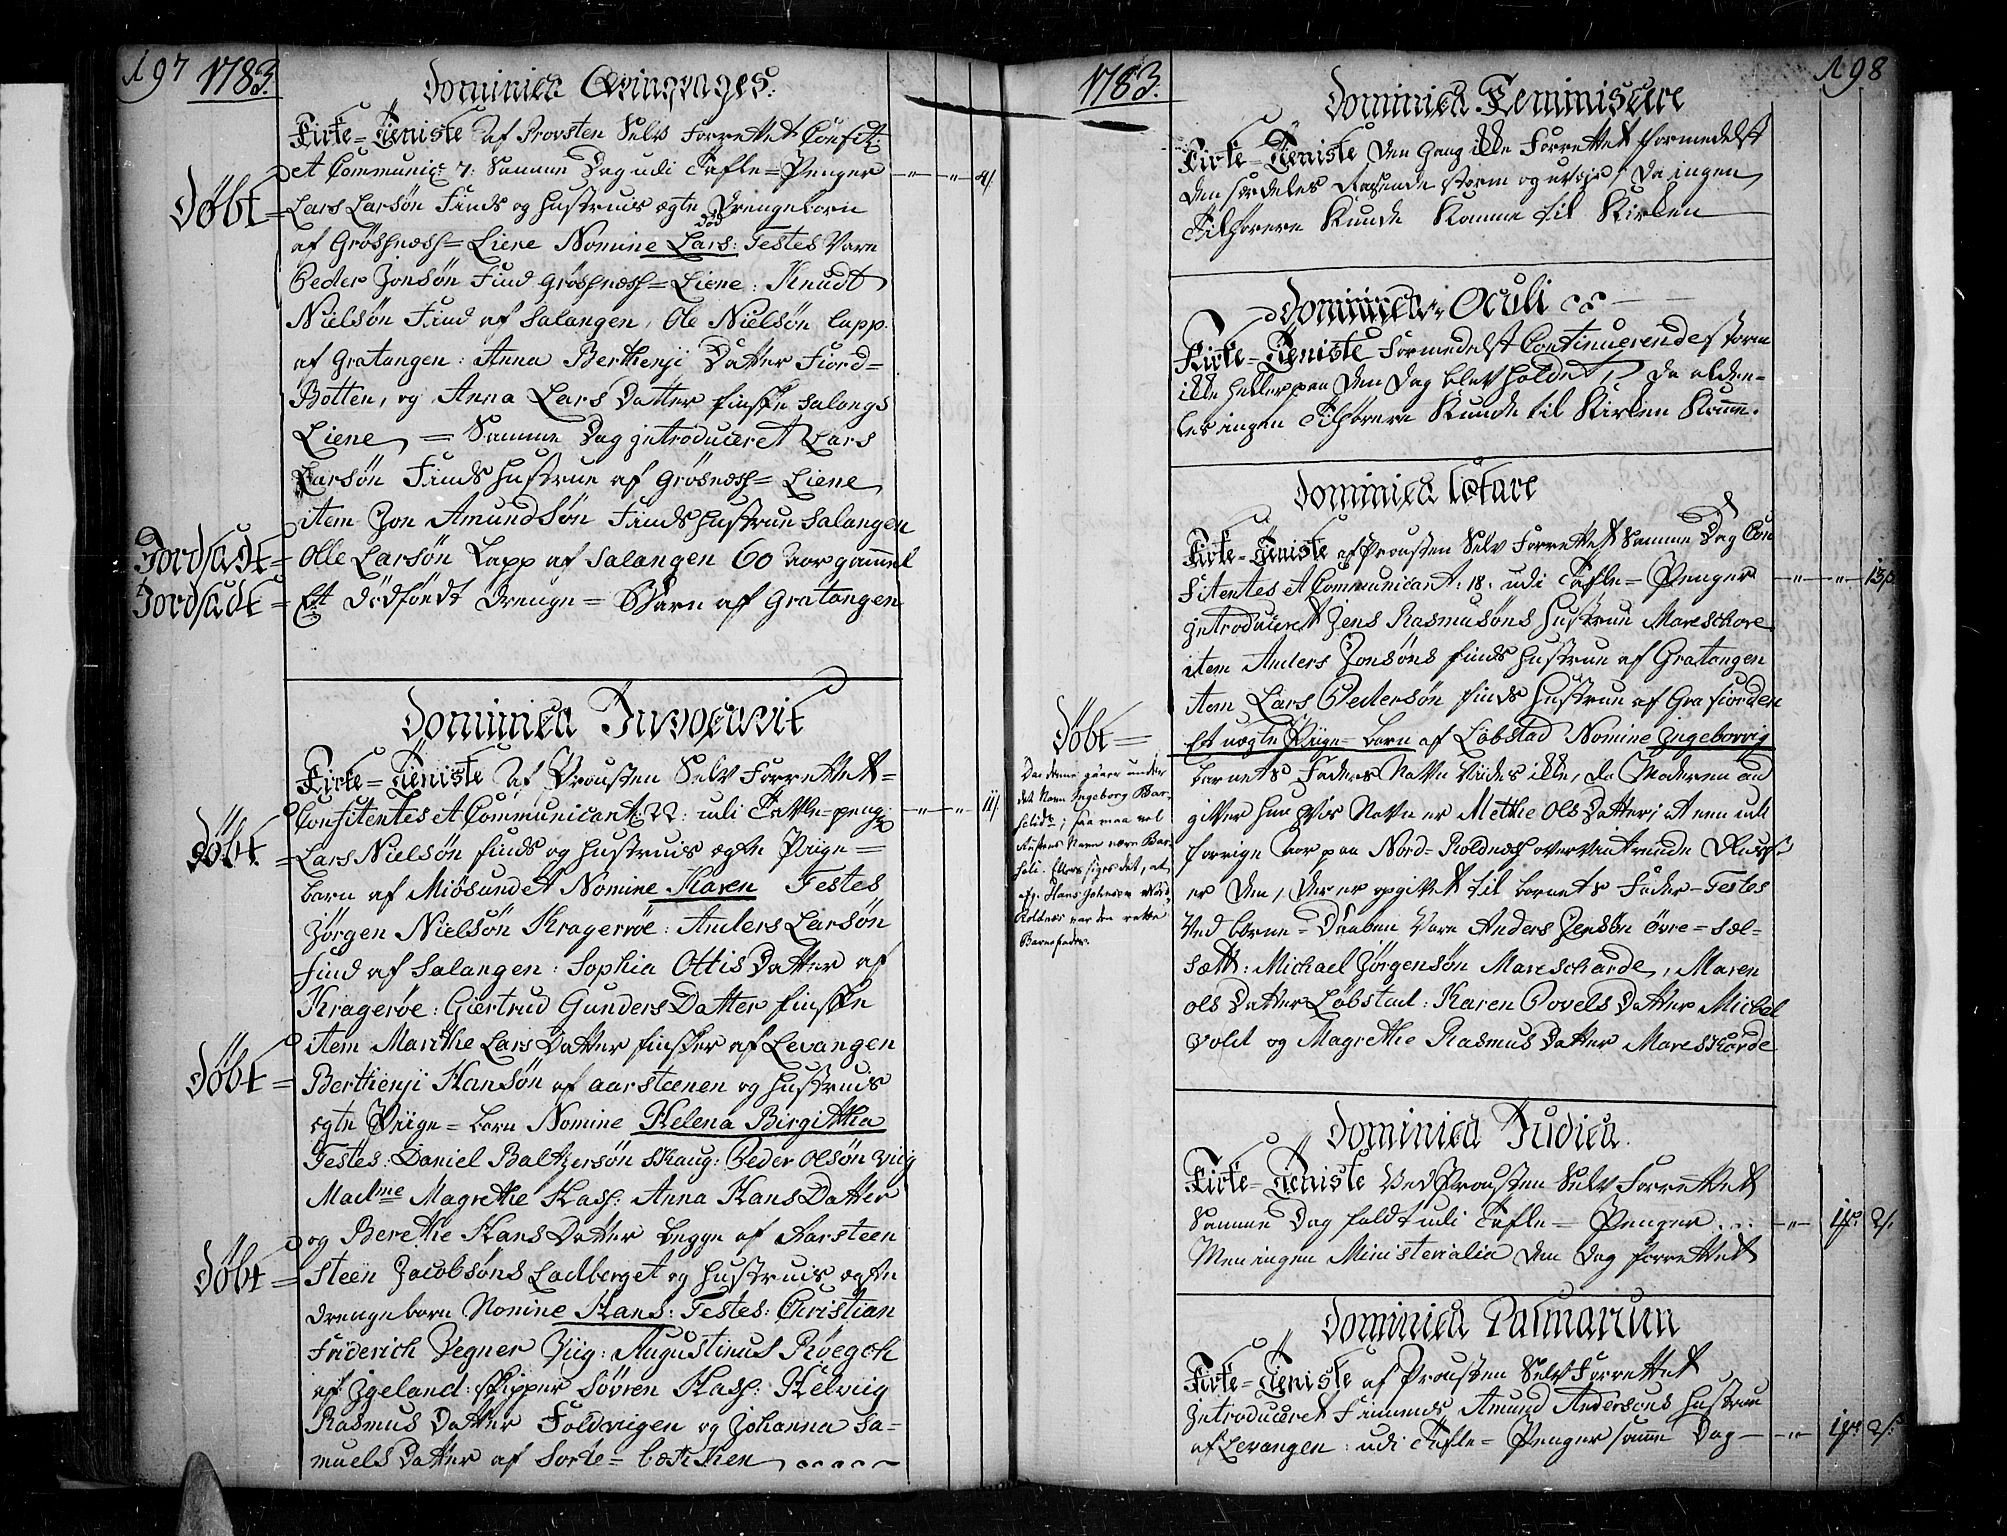 197 1783.
Dominica Qvinqvages:
Kirke=Tieniste af Provsten Selv Forrettet Confit:
et Communic: 7: Samme Dag udi Tafle=Penger — " — " 4/
Døbt= Lars Larsøn Finds og Hustrues ægte Drengebarn
død
af Grøssnæss=Liene Nomine Lars: Testes vare
Peder Jonsøn Find Grøssnæss=Liene: Knudt
Nielsøn Find af Salangen, Ole Nielsøn Lapp
af Gratangen: Anna Berthenji Datter Fiord=
Botten, og Anna Lars Datter finske Salangs
Liene = Samme Dag jntroduceret Lars
Larsøn Finds Hustrue af Grøsnæss=Liene
item Jon Amundsøn Finds Hustrue Salangen
Jordsadt= Olle Larsøn Lapp af Salangen 60 aar gammel
Jordsadt= Et Dødfødt Drenge=Barn af Gratangen
Dominica Invocavit
Kirke=Tieniste af Provsten Selv Forrettet=
Confitentes et Communicant: 22: udi Tafle=peng: — " — " 11/
Døbt. =Lars Nielsøn finds og Hustrues ægte Piige=
barn af Miøsundet Nomine Karen Testes
Jørgen Nielsøn Kragerøe: Anders Larsøn
find af Salangen: Sophia Ottis Datter af
Kragerøe: Giertrud Gunders Datter finske
item Marithe Lars Datter finske af Levangen
Døbt= Berthenji Hansøn af aarsteenen og Hustrues
ægte Piige=barn Nomine Helena Birgitha
Testes: Daniel Baltzersøn Skaug: Peder Olsøn Viig
Madme Magrethe Hass: Anna Hans Datter
og Berethe Hans Datter begge af Aarsteen
Døbt= Steen Jacobsøns Ladberget og Hustrues ægte
Drengebarn Nomine Hans: Testes: Christian
Friderich Vegner Viig: Augustinus Røegch
af Jgeland: skipper Søvren Hass: Helviig
Rasmus Datter Foldvigen og Johanna Sa=
muels Datter af Sorte=
1783. 198
Dominica Reminiscere
Kirke=Tieniste den Gang ikke Forrettet formedelst
den særdeles Rasende storm og uvejr, da ingen
Tilhørere Kunde Komme til Kirken
Dominica Oculi
Kirke=Tieniste Formedelst Continuerende storm
ikke heller paa den Dag blev holdet, da alden=
les ingen Tilhørere Kunde til Kirken Komme.
Dominica Letare
Kirke=Tieniste af Provsten Selv Forrettet Samme Dag Con
fitentes et Communicant: 18. udi Tafle=Penger — " — " 13/
jntroduceret Jens Rasmusøns Hustrue Mareschore
item Anders Jonsøns finds Hustrue af Gratangen
item Lars Pedersøn finds Hustrue af Grafiorden
Døbt= Et uægte Piige=barn af Løbstad Nomine Jngeborrig
barnets Faders Navn vides ikke, da Moderen an
giver hvis Navn er Methe Ols Datter, at en udi
forrige aar paa Nord=Roldness overvintrende Russ=
er den, der er opgivet til barnets Fader=Testes
Ved børne=Daaben vare Anders Jensøn øvre=Sæl=
sætt: Michael Jørgensøn Mareschorde, Maren
Ols Datter Løbstad: Karen Povels Datter Mickel
Volet og Magrethe Rasmus Datter Mareskorde
Da denne gaaer under
det Navn Ingeborg Bar-
; saa maa vel
Navn være Bar-
. Ellers siges det, at
Hans Johnson Nord
Roldnes var den rette
Barnefader.
Dominica Judica.
Kirke=Tieniste Ved Provsten Selv Forrettet
Samme Dag faldt udi Tafle=Penger . . . — " — 1/ 2/
Men ingen Ministerialia den Dag forrettet
Dominica Palmarum
Kirke=Tieniste af Provsten Selv Forrettet
Jntroduceret Amund Andersøns Hustrue
af Levangen: udi Tafle=Penger samme Dag — " — 1/ 2/